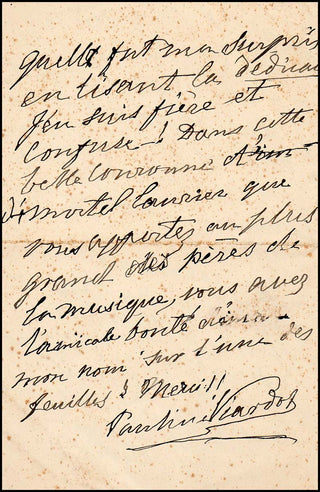 quelle fut ma surpris
en lisant la dédicac
J'en suis fière et
confuse ! Dans cette
belle couronne
d'immortel laurier que
vous apportez au plus
grand des pères de
la musique, vous avez
l'amicale bonté
mon nom sur l'une des
feuilles ! Merci !!
Pauline Viardot